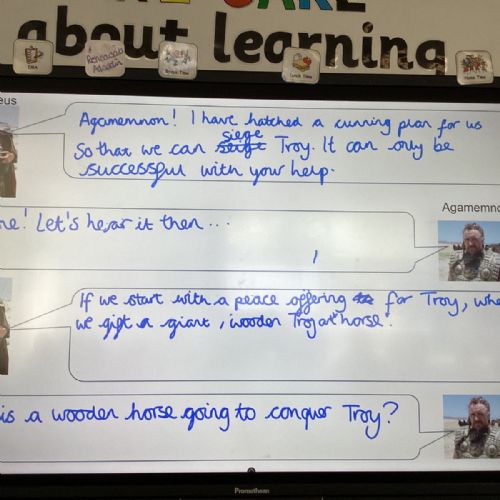 CARE
about learning
Rehearsals
Aladdin
Lunch Time
Home Time
eus
Agamemnon! I have hatched a cunning plan for us
So that we can siege Troy. It can only be
successful with your help.
Agamemno
ne! Let's hear it then...
If we start with a peace offering for Troy, whe
we gift a giant, wooden Trojan horse!
is a wooden horse going to conquer Troy?
Promethean